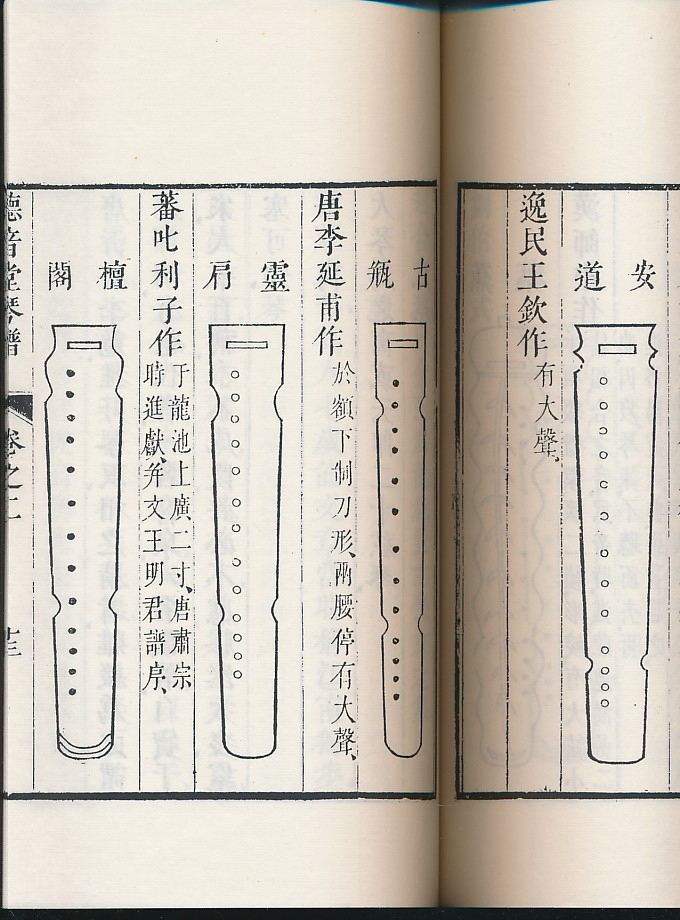 安道
逸民王欽作
有大聲、
古瓶
唐李延甫作
於額下制刀形、兩腰停有大聲、
靈
蕃叱利子作
于龍池上廣二寸、唐肅宗
時進獻、并文王明君譜序、
檀閣
德音堂琴譜
卷之二
十三